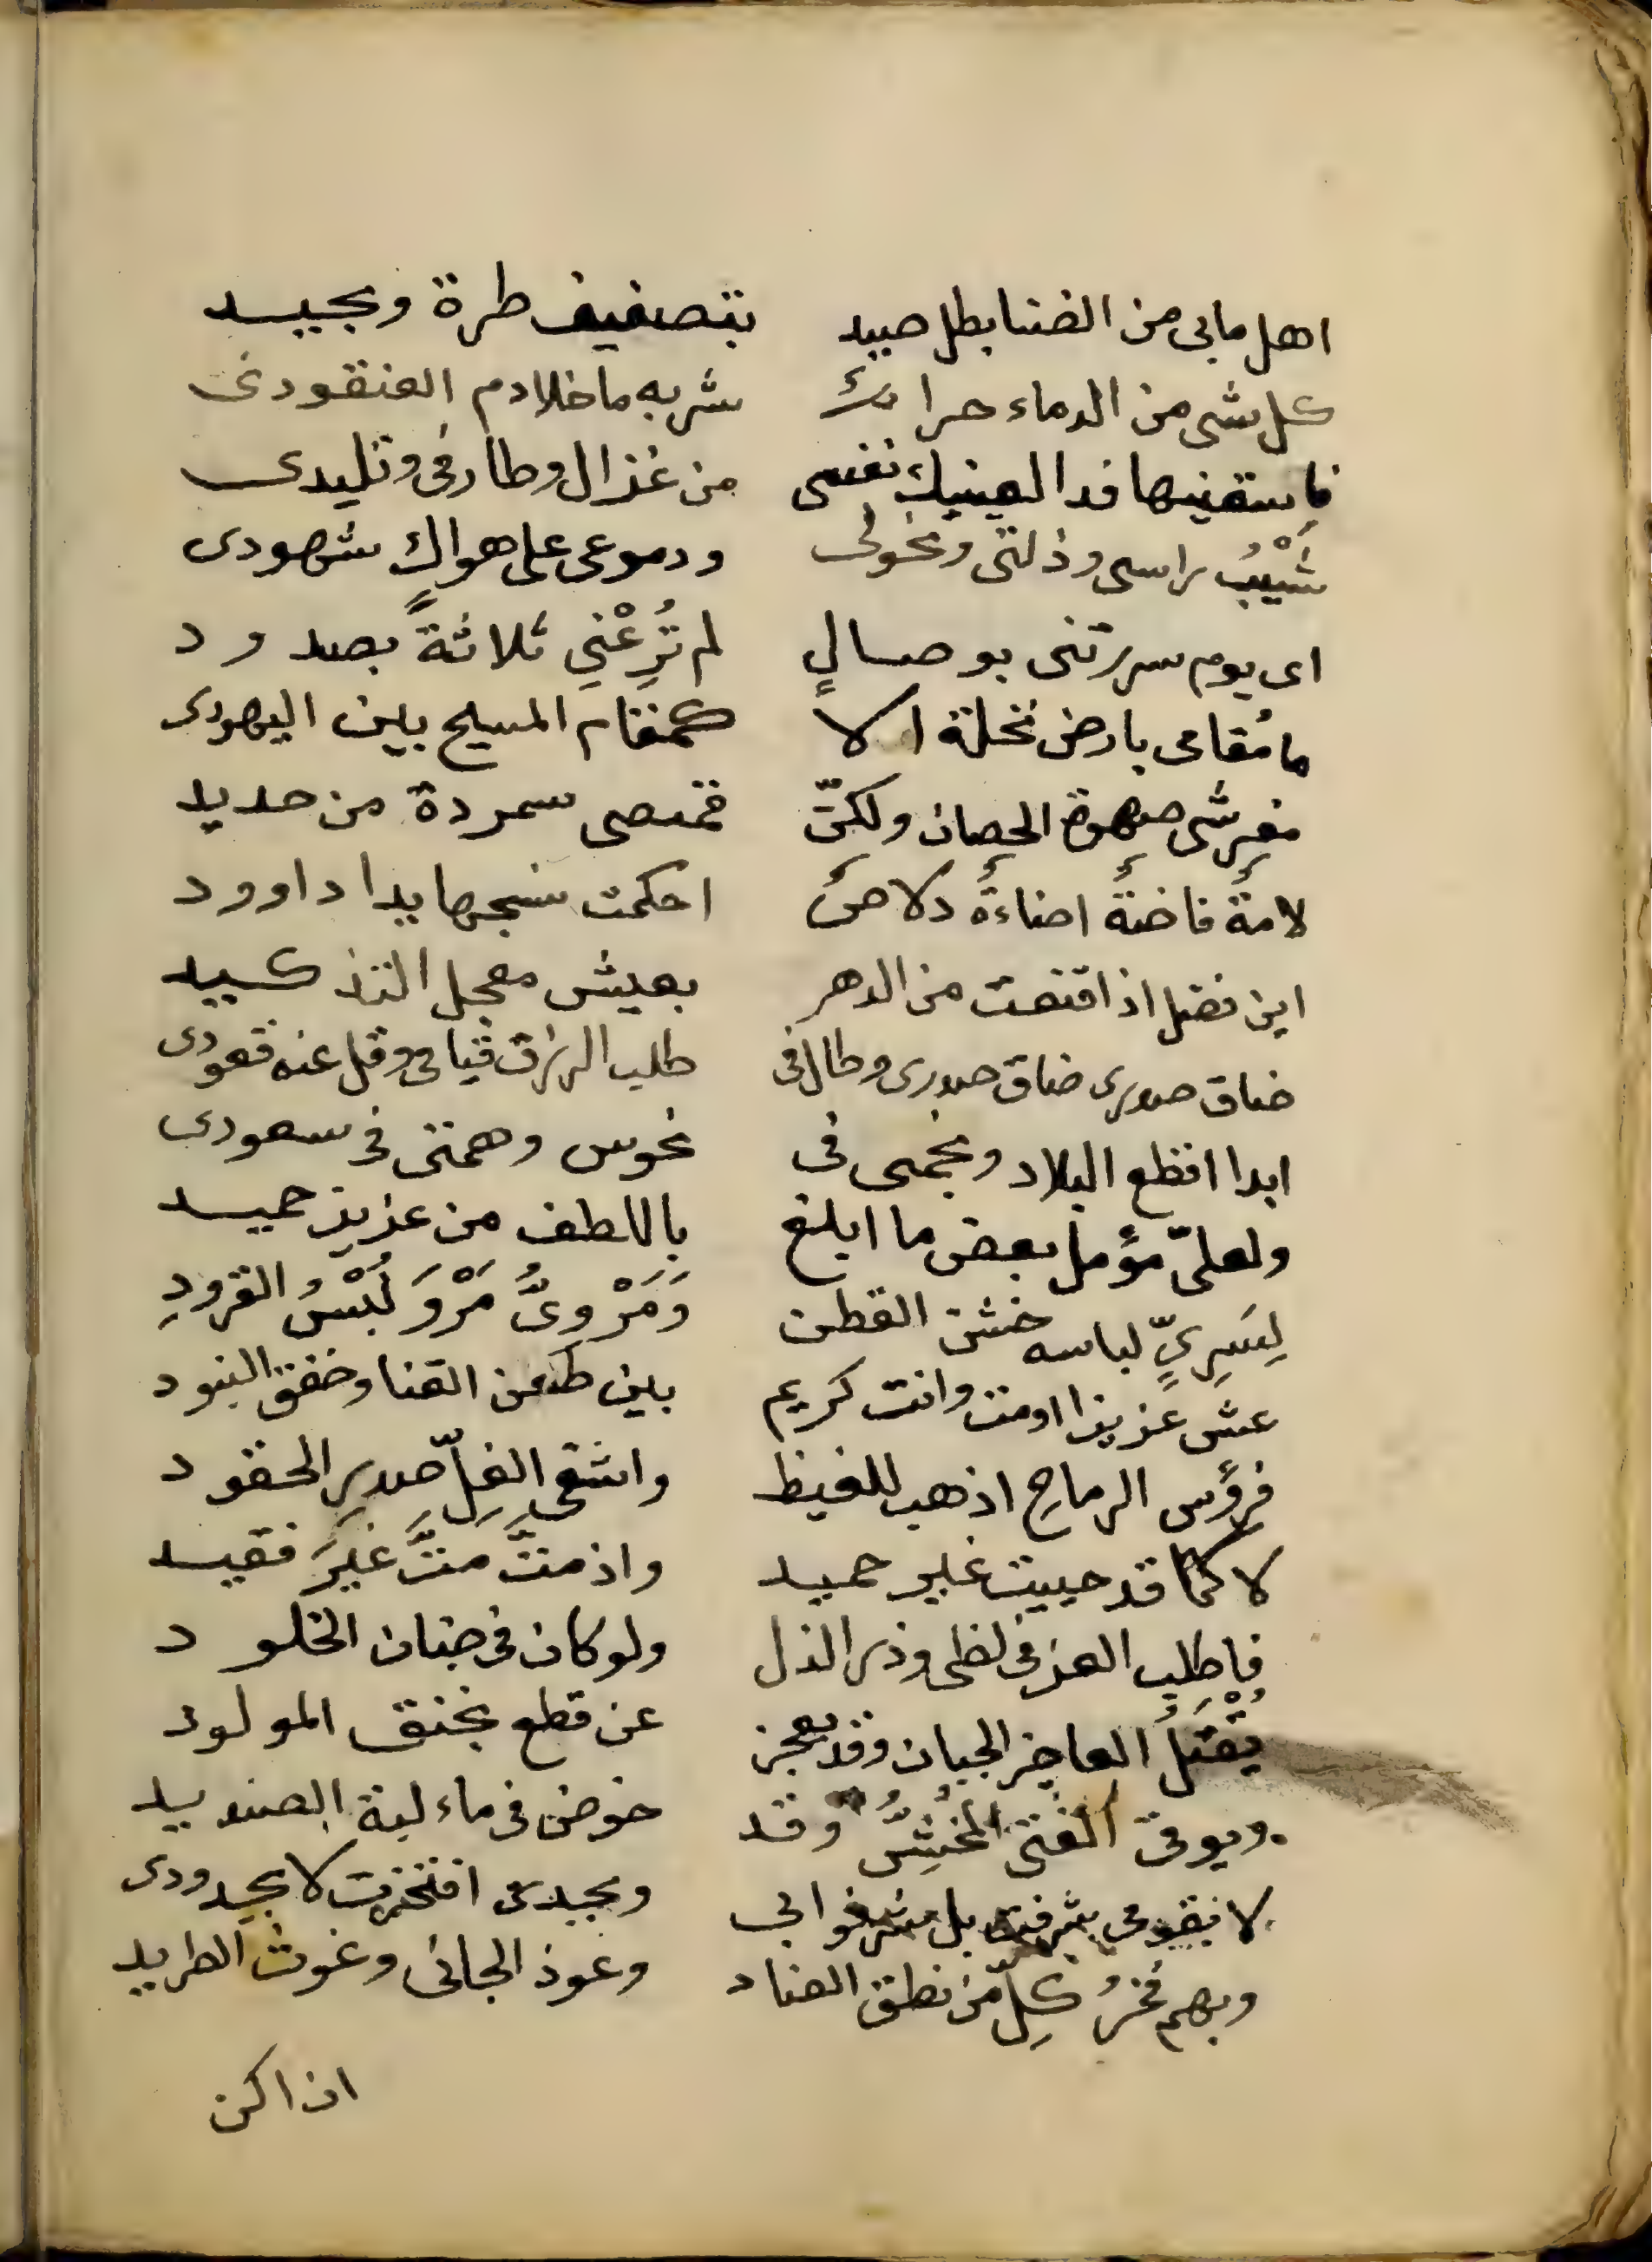 اهل مابى من الضنا بطل صيد بتصفيف طرة وبجيد
كل شى من الدماء حرا مٌ شربه ما خلا دم العنقودى
فاسقنيها فدا لعينيك نفسى من غزال وطارفى وتليدى
شَيْبُ راسى وذلتى ونحولى ودموعى على هواكٍ شهودى
اى يوم سررتنى بوصالٍ لم تُرِعْنِي ثلاثةً بصدود
ما مُقامى بارض نخلة الا كمقام المسيح بين اليهودى
مفرشى صهوة الحصان ولكنّ قمصى سمردة من حديد
لامةٌ فاضةٌ اضاءةٌ دلاصٌ احكمت نسجها يدا داوود
اين فضل اذا قنعت من الدهر بعيش معجل التنكيد
ضاق صدرى ضاق صدرى وطال فى طلب الرزق قيامى وقل عنه قعودى
ابدا اقطع البلاد ونجمى فى نحوس وهمتى فى سعودى
ولعلىّ مؤمل بعض ما ابلغ باللطف من عزيز حميد
لِسَرِيٍّ لباسه خشن القطن وَمَرْوىُّ مَرْوَ لُبْسُ القرودِ
عش عزيزا او مت وانت كريم بين طعن القنا وخفق البنود
فرؤس الرماح اذهب للغيظ واشفى الغلّ صدر الحقود
لا كما قد حييت غير حميد واذ متَّ متَّ غيرَ فقيد
فاطلب العز فى لظى وذر الذل ولو كان فى جنان الخلود
يُقْتَلُ العاجز الجبان وقد يعجز عن قطع بخنق المولود
ويوقى الفتى المُخِشُّ وقد خوض فى ماء لبة الصنديد
لا بقومى شرفت بل شرفوا بى وبجدى افتخرت لا بجدودى
وبهم فخرُ كلِّ من نطق الضاد وعوذ الجانى وغوث الطريد
ان اكن